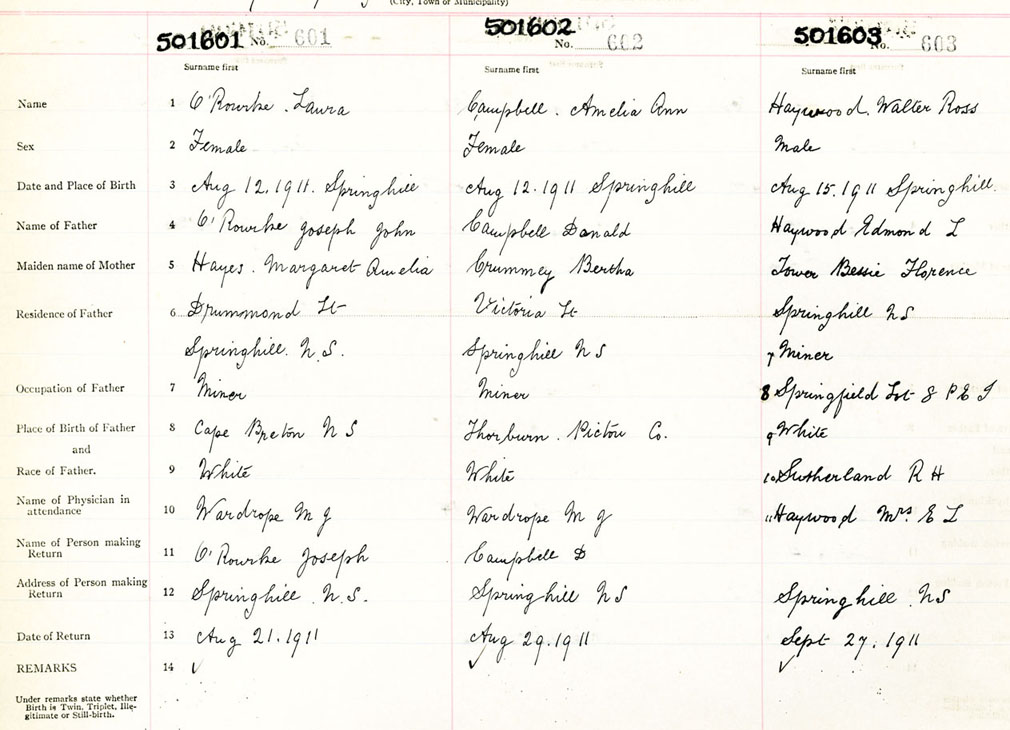 (City, Town or Municipality)
501601 No. 601 501602 No. 602 501603 No. 603
Surname first Surname first Surname first
Name 1 O'Rourke . Laura Campbell . Amelia Ann Haywood. Walter Ross
Sex 2 Female Female Male
Date and Place of Birth 3 Aug 12.1911. Springhill Aug 12.1911 Springhill Aug 15.1911 Springhill.
Name of Father 4 O'Rourke Joseph John Campbell Donald Haywood Edmond L
Maiden name of Mother 5 Hayes. Margaret Amelia Crummey Bertha Tower Bessie Florence
Residence of Father 6 Drummond St Victoria St Springhill NS
Springhill. N.S. Springhill NS 7 Miner
Occupation of Father 7 Miner Miner 8 Springfield Lot 8 P E I
Place of Birth of Father 8 Cape Breton N S Thorburn . Pictou Co. 9 White
and
Race of Father. 9 White White 10 Sutherland R H
Name of Physician in
attendance 10 Wardrope M J Wardrope M J 11 Haywood Mrs E L
Name of Person making
Return 11 O'Rourke Joseph Campbell D
Address of Person making
Return 12 Springhill . N.S. Springhill NS Springhill . NS
Date of Return 13 Aug 21.1911 Aug 29.1911 Sept 27.1911
REMARKS 14 ✓ ✓ ✓
Under remarks state whether
Birth is Twin, Triplet, Ille-
gitimate or Still-birth.